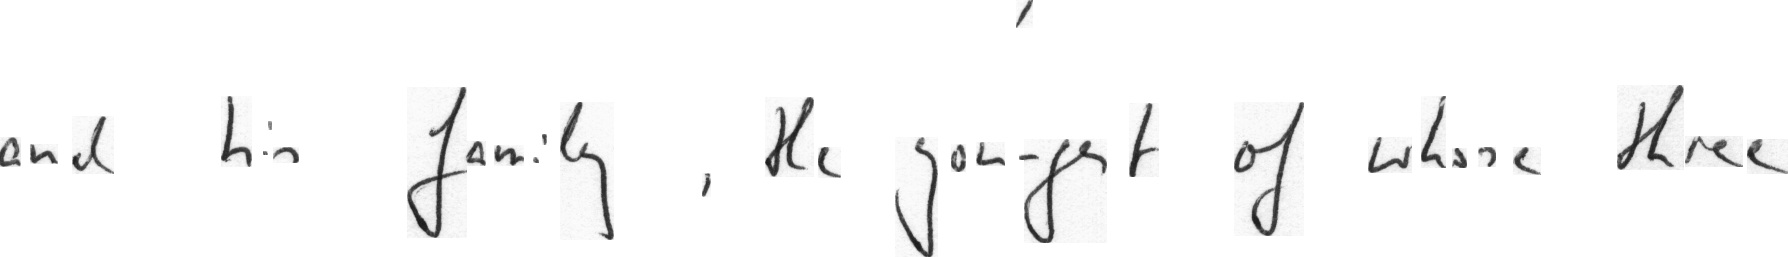 and his family, the youngest of whose three